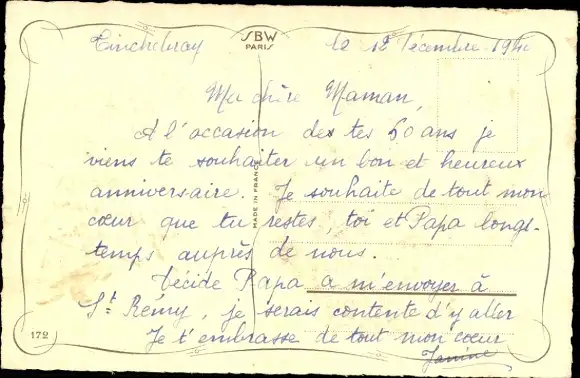 SBW
PARIS
Tinchebray le 12 Décembre 194
Ma chère Maman,
A l'occasion des tes 60 ans je
viens te souhaiter un bon et heureux
anniversaire. Je souhaite de tout mon
cœur que tu restes, toi et Papa long-
temps auprès de nous.
Décide Papa a m'envoyer à
St Rémy, je serais contente d'y aller
Je t'embrasse de tout mon cœur
Janine
MADE IN FRANCE
172